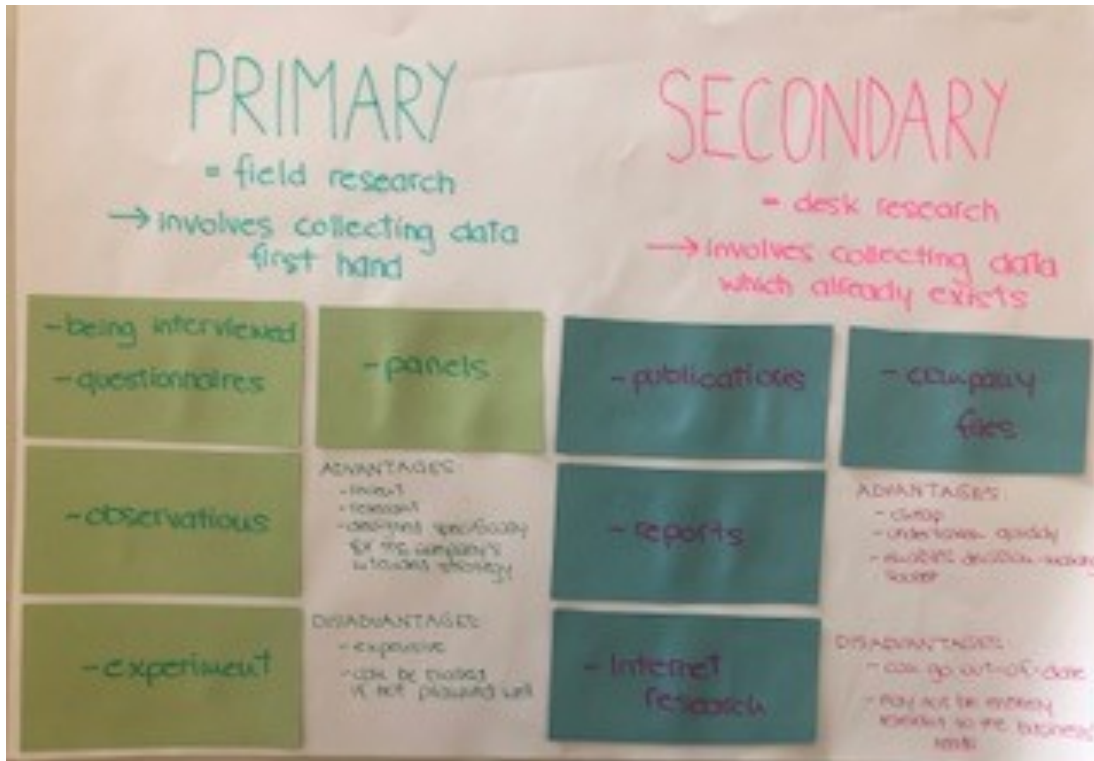 PRIMARY
= field research
→ involves collecting data
first hand
- being interviewed
- questionnaires
- panels
- observations
- experiment
ADVANTAGES:
- recent
- relevant
- designed specifically
for the company's
strategy
DISADVANTAGES:
- expensive
- can be biased
if not planned well
SECONDARY
= desk research
→ involves collecting data
which already exists
- publications
- company
files
- reports
- Internet
research
ADVANTAGES:
- cheap
- undertaken quickly
- enables decision-making
sooner
DISADVANTAGES:
- can go out-of-date
- may not be entirely
to the business